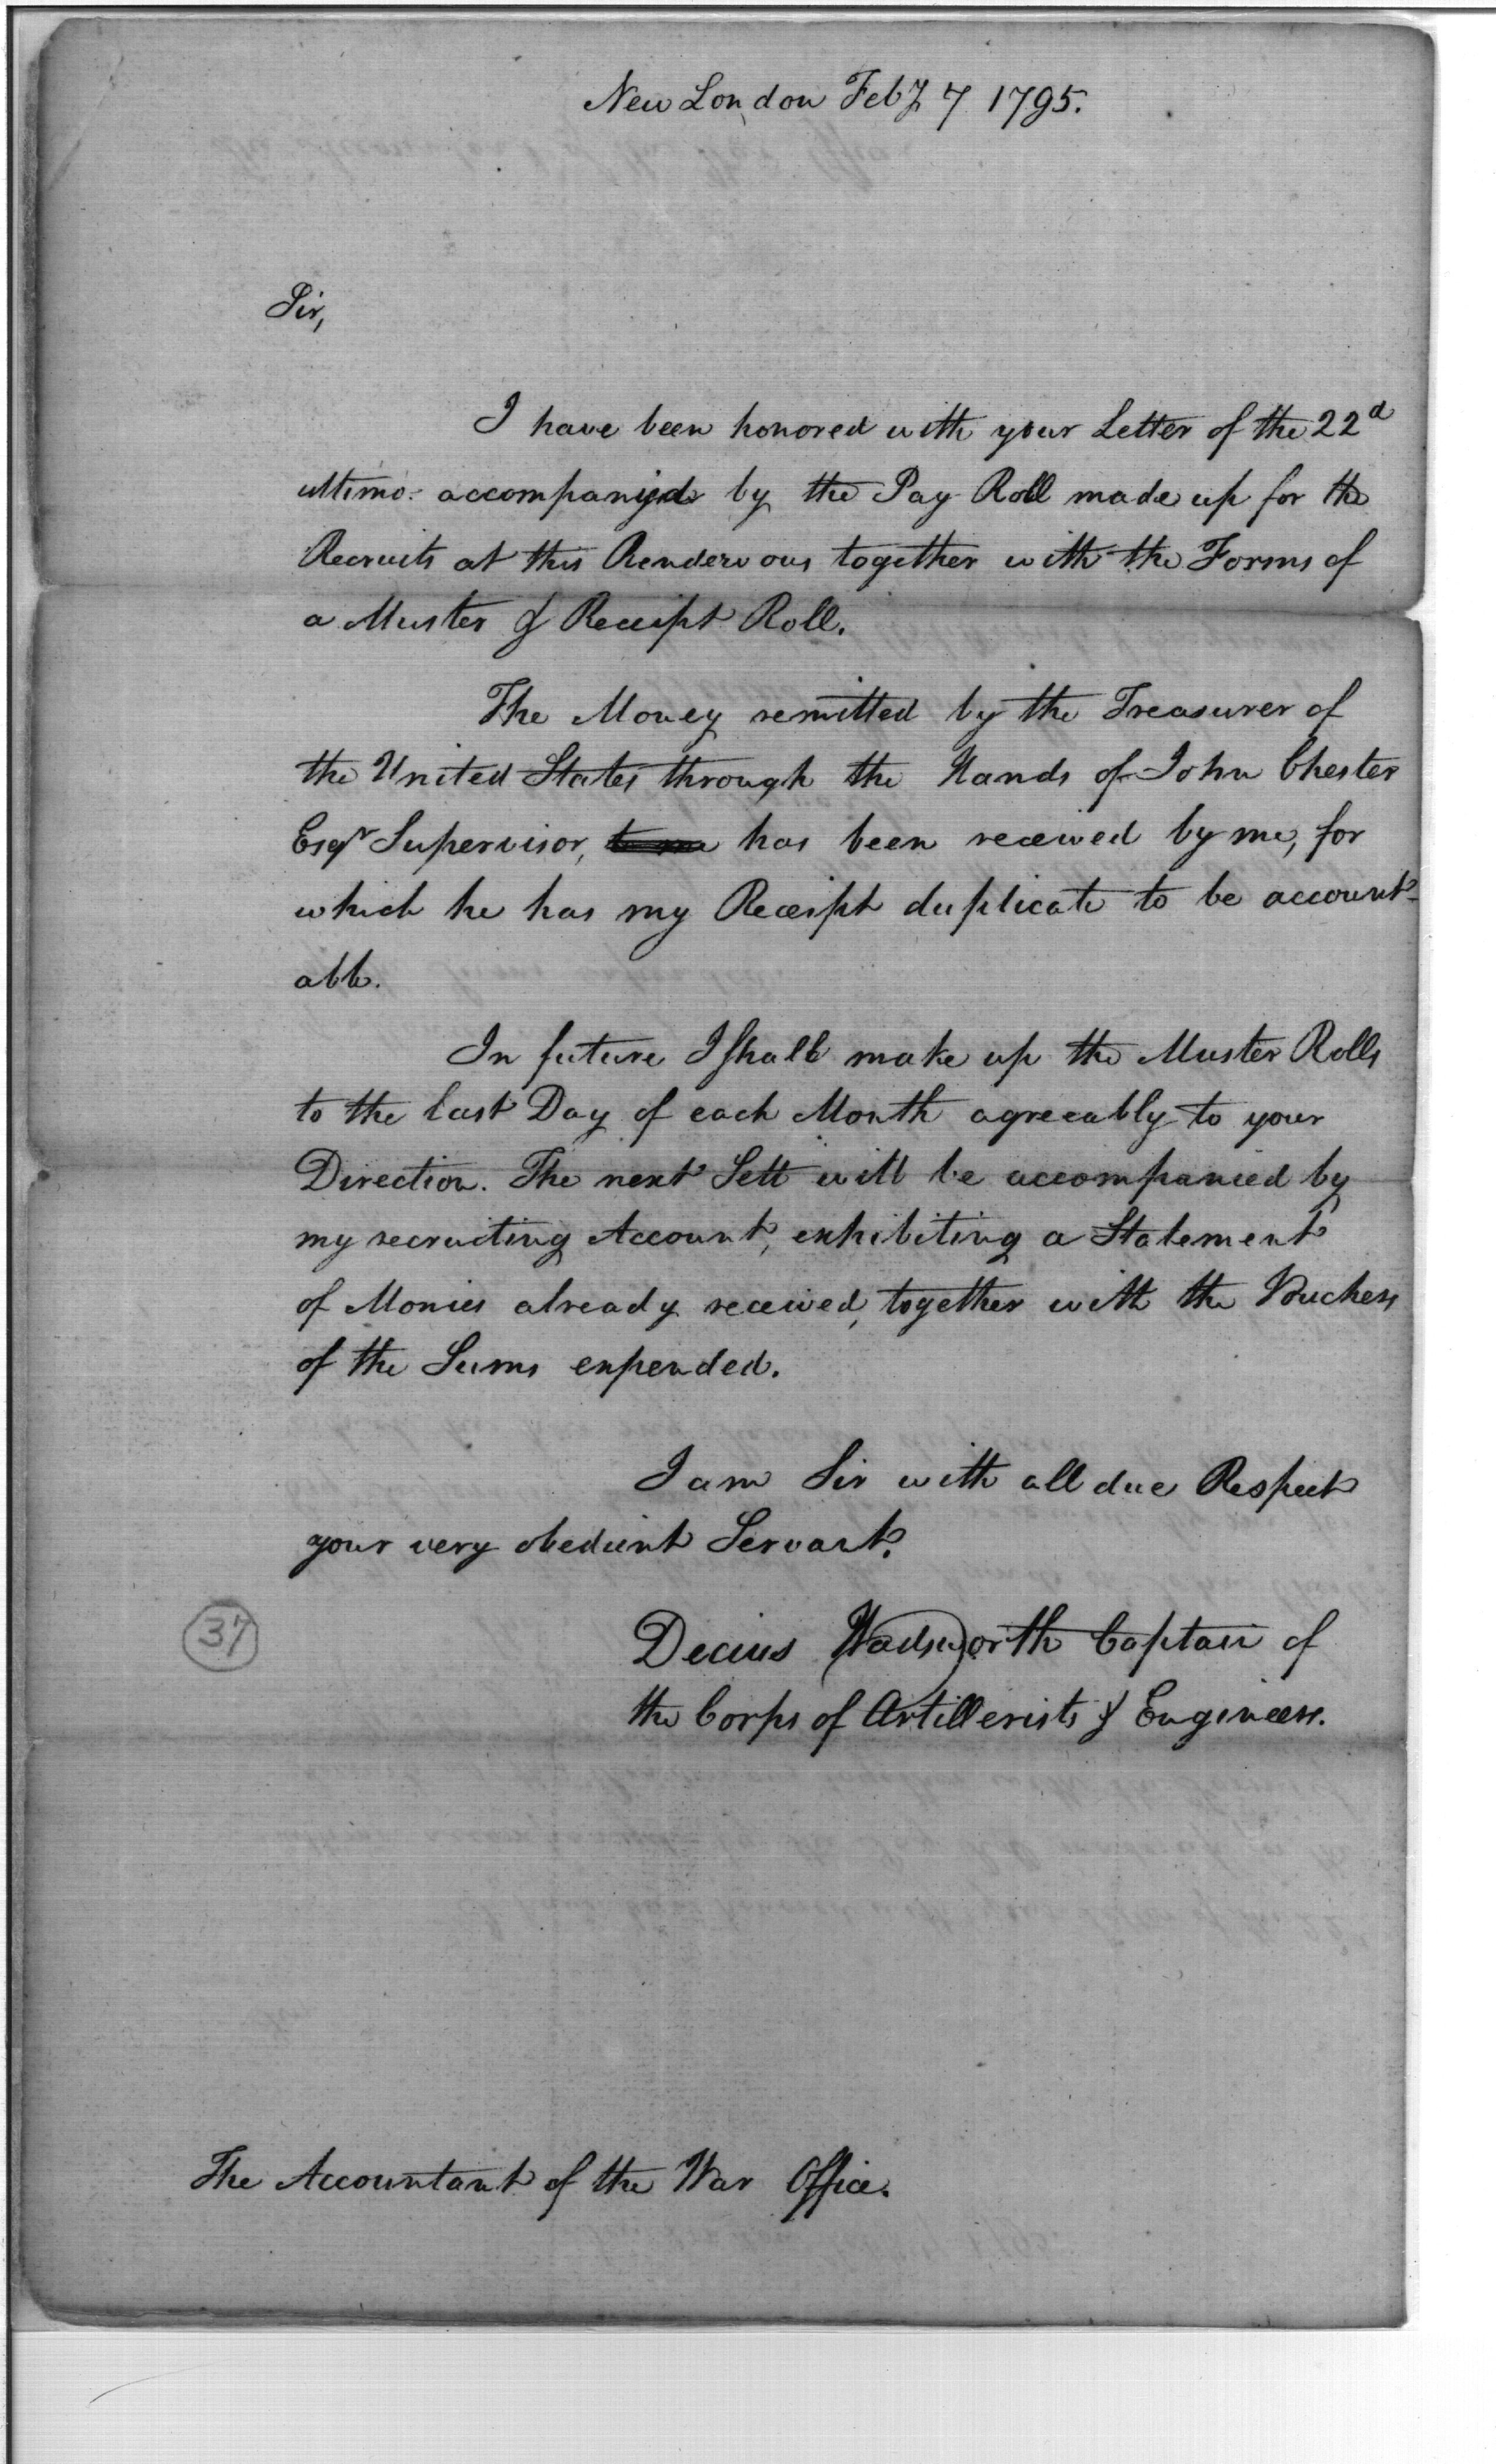 New London Feby 7 1795.
Sir,
I have been honored with your Letter of the 22d
ultimo. accompanyed by the Pay Roll made up for the
Recruits at this Rendezvous together with the Forms of
a Muster & Receipt Roll.
The Money remitted by the Treasurer of
the United States through the Hands of John Chester
Esqr Supervisor, has been received by me, for
which he has my Receipt duplicate to be account-
able.
In future I shall make up the Muster Rolls
to the last Day of each Month agreeably to your
Direction. The next Sett will be accompanied by
my recruiting Account, exhibiting a Statement
of Monies already received, together with the Vouchers
of the Sums expended.
I am Sir with all due Respect
your very obedient Servant.
Decius Wadsworth Captain of
the Corps of Artillerists & Engineers.
37
The Accountant of the War Office.